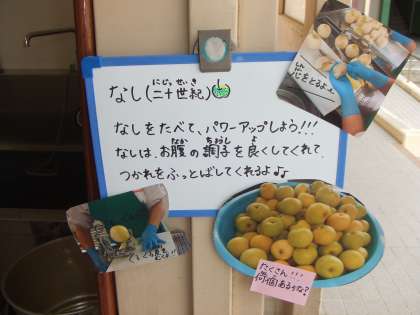 なし(二十世紀)
にじっせいき
なしをたべて、パワーアップしよう!!!
なしは、お腹の調子を良くしてくれて、
なか ちょうし よ
つかれをふっとばしてくれるよ♪♪
芯をとるよ
たくさん!!!
何個あるかな?